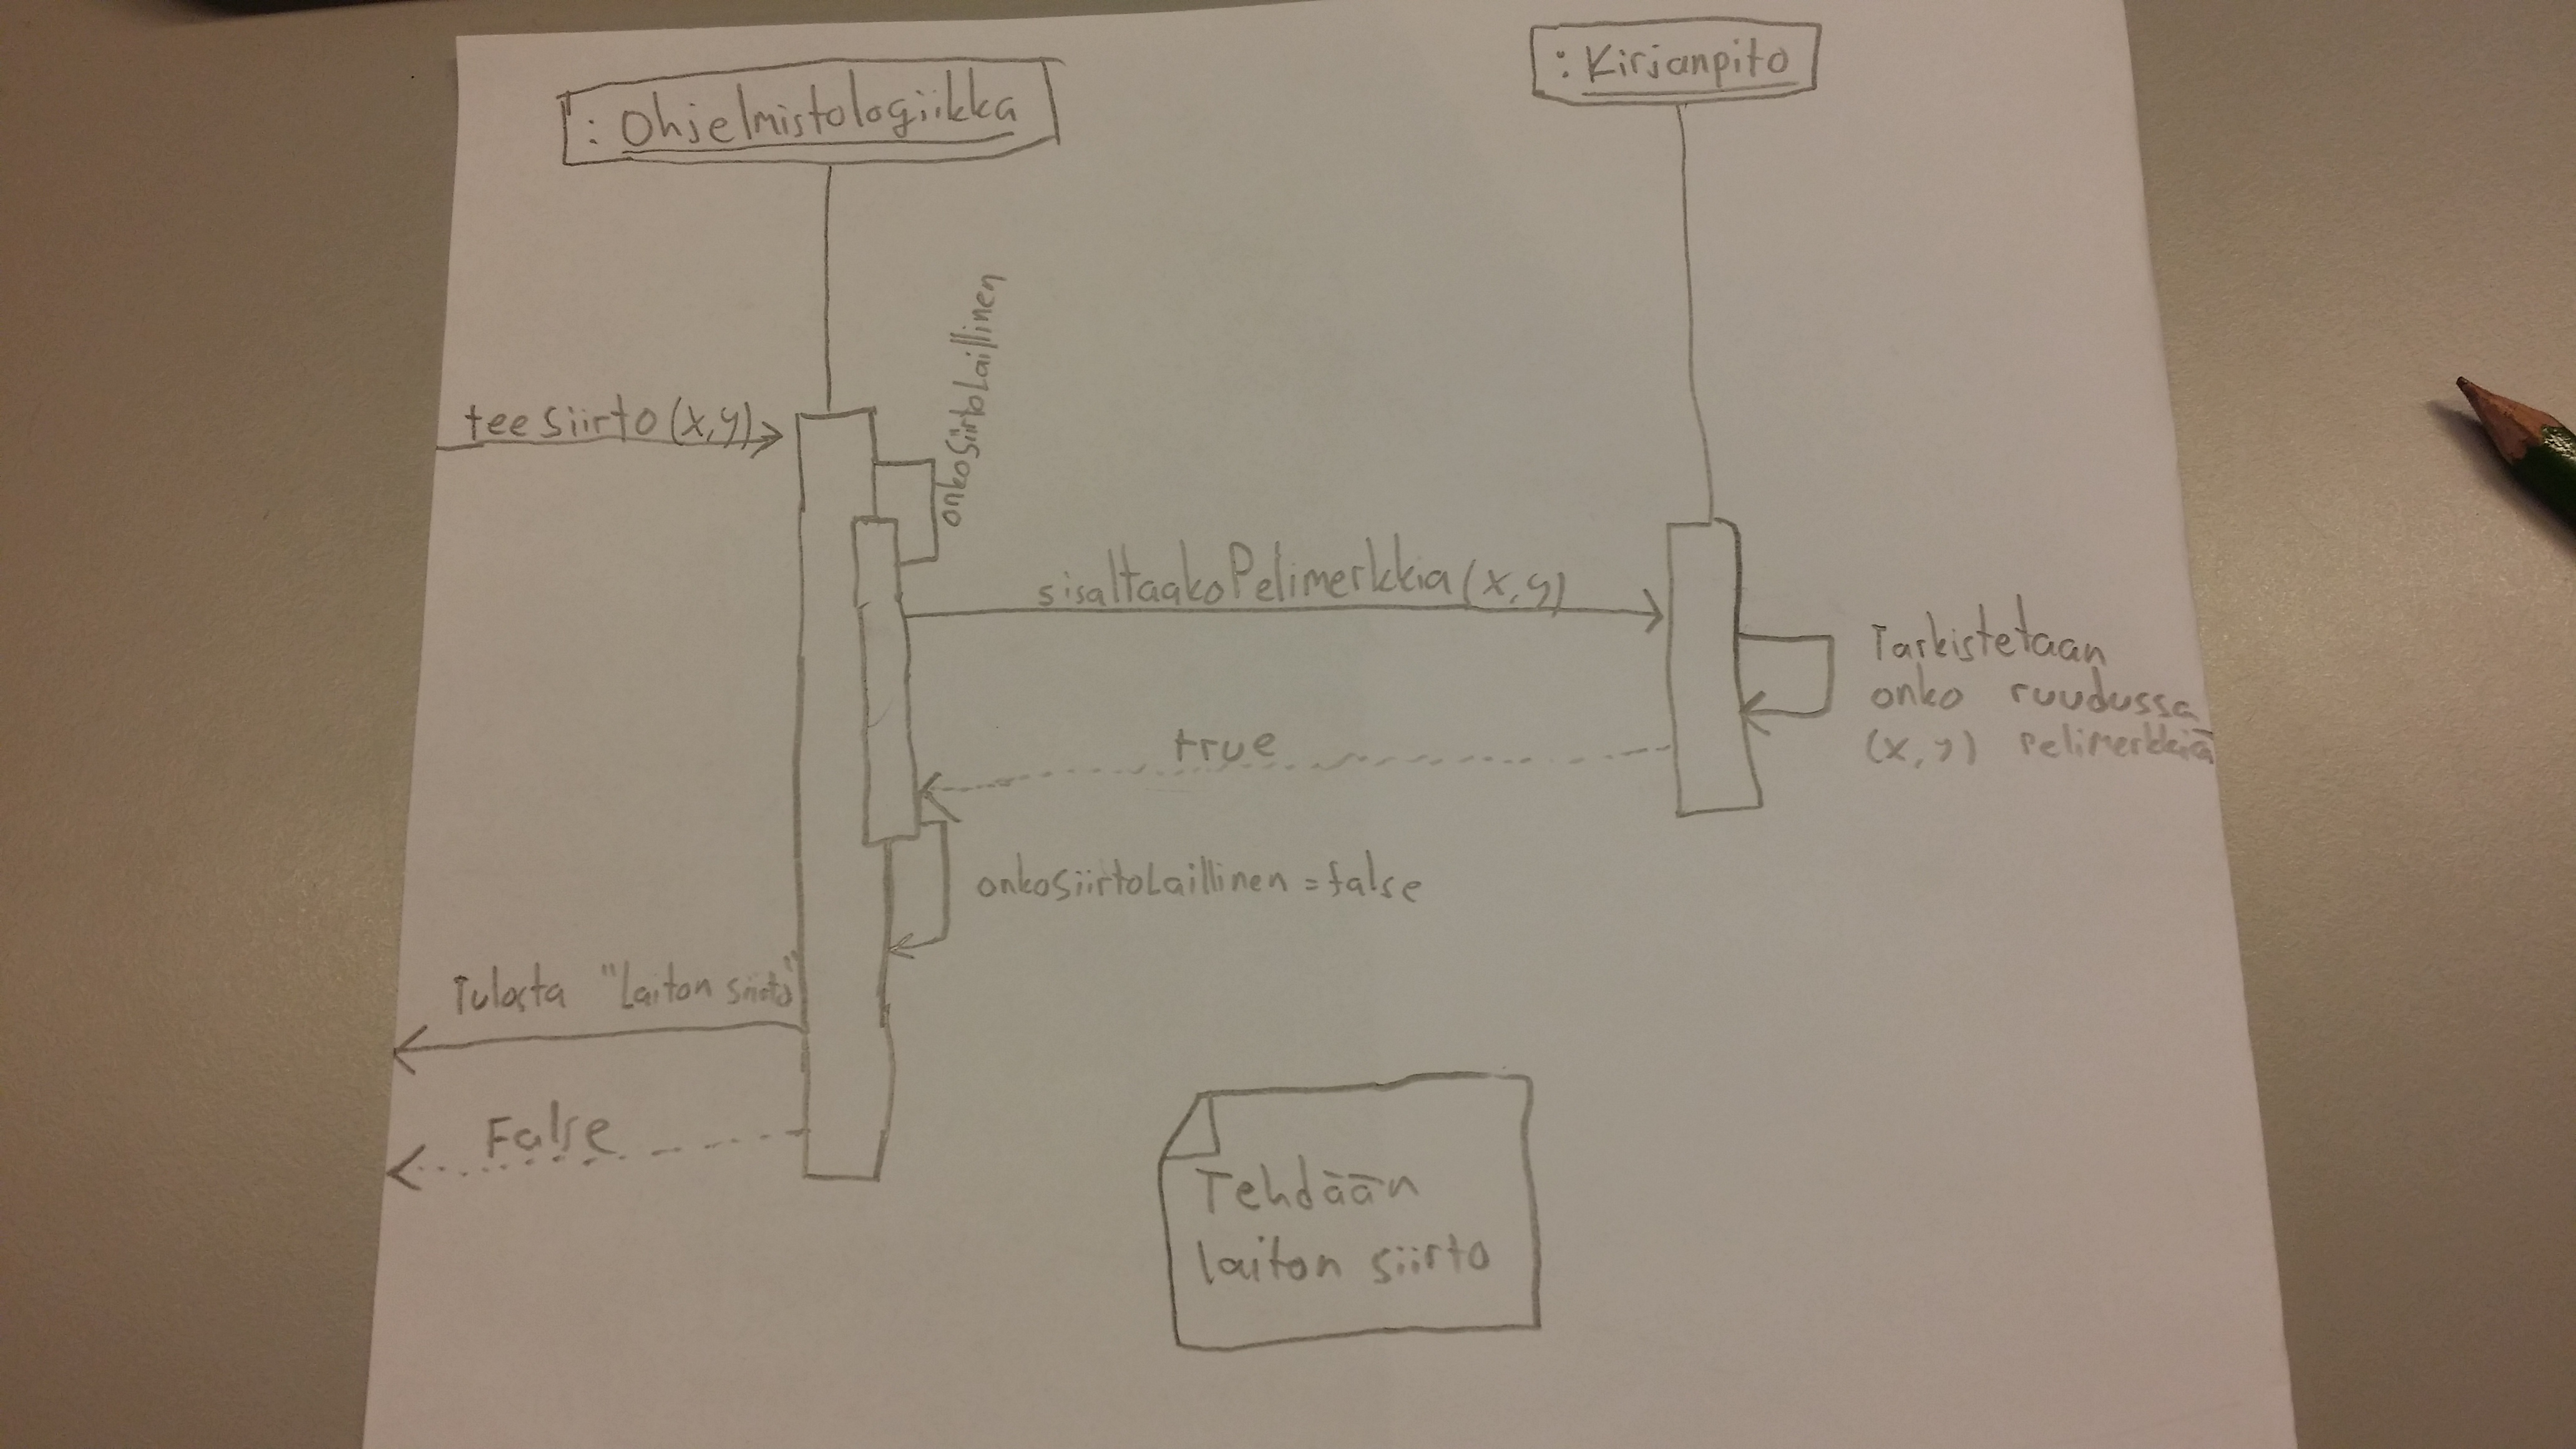 : Ohjelmistologiikka
: Kirjanpito
onkoSiirtoLaillinen
teeSiirto(x,y)
sisaltaakoPelimerkkia(x,y)
Tarkistetaan
onko ruudussa
(x,y) pelimerkkiä
true
onkoSiirtoLaillinen = false
Tulosta "Laiton siirto"
False
Tehdään
laiton siirto